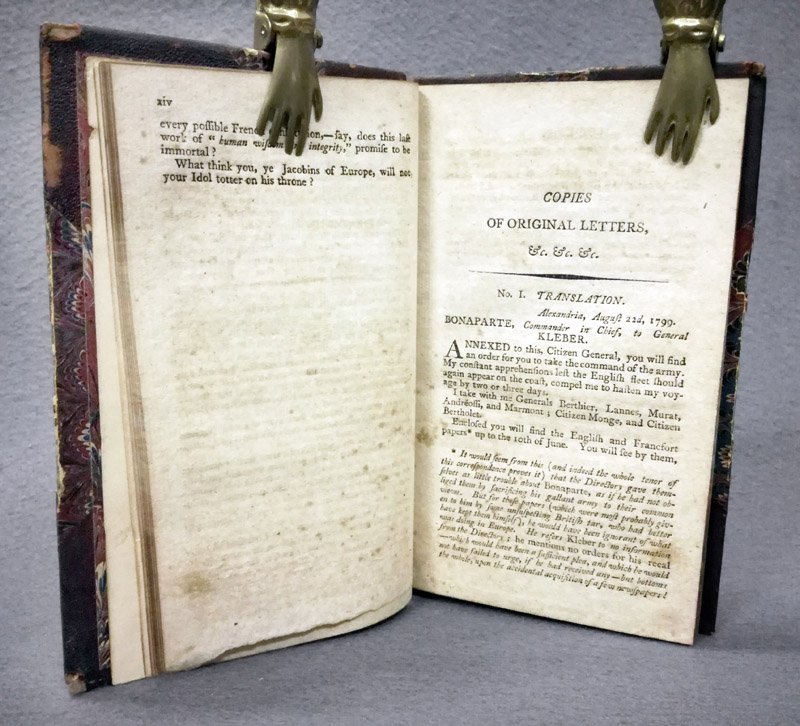 xiv
every poſſible —ſay, does this laſt
work of “ human integrity,” promiſe to be
immortal ?
What think you, ye Jacobins of Europe, will not
your Idol totter on his throne ?
COPIES
OF ORIGINAL LETTERS,
&c. &c. &c.
No. I. TRANSLATION.
Alexandria, Auguſt 22d, 1799.
BONAPARTE, Commander in Chief, to General
KLEBER.
ANNEXED to this, Citizen General, you will find
an order for you to take the command of the army.
My conſtant apprehenſions leſt the Engliſh fleet ſhould
again appear on the coaſt, compel me to haſten my voy-
age by two or three days.
I take with me Generals Berthier, Lannes, Murat,
Andréoſſi, and Marmont ; Citizen Monge, and Citizen
Bertholet.
Encloſed you will find the Engliſh and Francfort
papers* up to the 10th of June. You will ſee by them,
* It would ſeem from this (and indeed the whole tenor of
this correſpondence proves it) that the Directory gave them-
ſelves as little trouble about Bonaparte, as if he had not ob-
liged them by ſacrificing his gallant army to their common
views. But for thoſe papers (which were moſt probably giv-
en to him by ſome unſuſpecting Britiſh tar, who had better
have kept them himſelf), he would have been ignorant of what
was doing in Europe. He refers Kleber to no information
from the Directory ; he mentions no orders for his recal
—which would have been a ſufficient plea, and which he would
not have failed to urge, if he had received any—but bottoms
the whole, upon the accidental acquiſition of a few newſpapers !